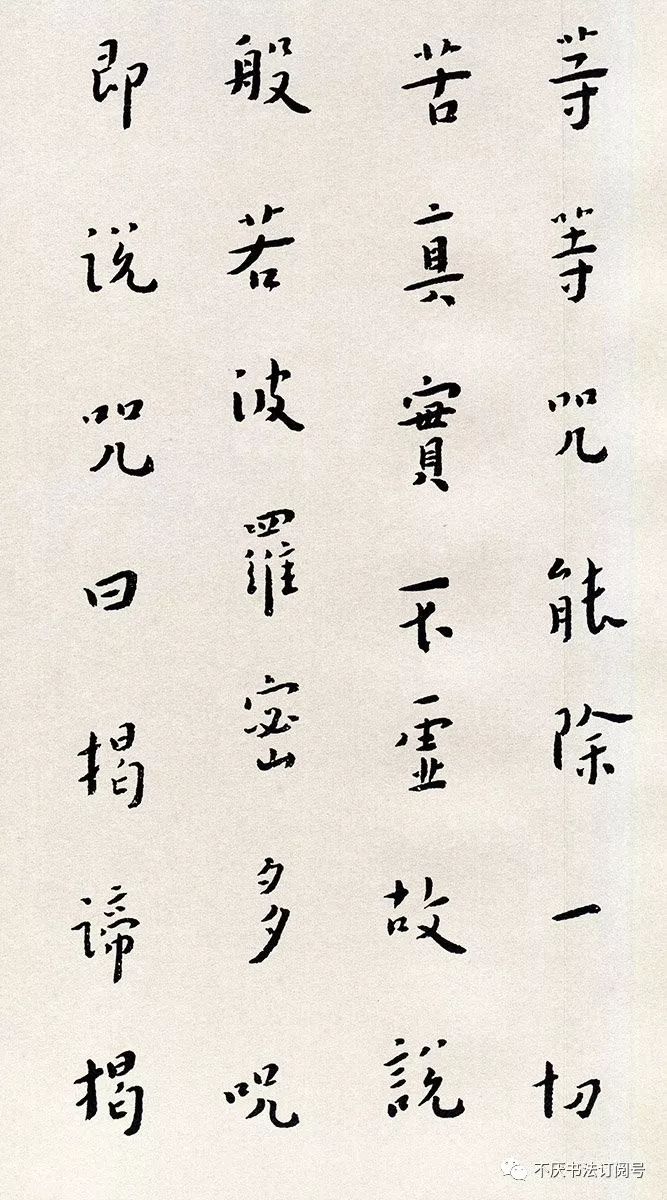 等等咒能除一切
苦真實不虛故說
般若波羅密多咒
即說咒曰揭諦揭
不厌书法订阅号